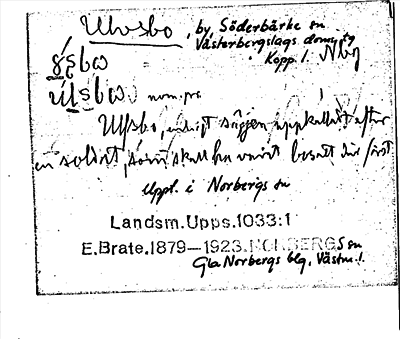 Ulvsbo, by, Söderbärke sn
Västerbergslags doms. tg
Kopp. l.
nom. pr.
Ulfsbo, enligt sägen uppkallat efter
en soldat, som skall ha varit bosatt där först
Uppt. i Norbergs sn
Landsm.Upps.1033:1
E.Brate.1879–1923.NORBERGS sn
Gla Norbergs blg, Västm. l.